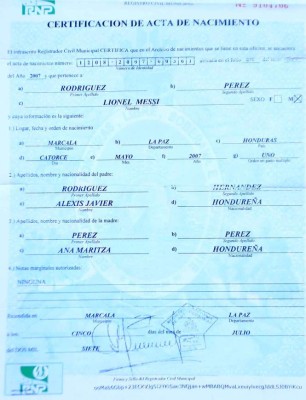 RNP
CERTIFICACION DE ACTA DE NACIMIENTO
El infrascrito Registrador Civil Municipal CERTIFICA que en el Archivo de nacimientos que se lleva en esta oficina, se encuentra
el acta de nacimiento número:
del Año 2007 y que pertenece a:
a) RODRIGUEZ b) PEREZ
Primer Apellido Segundo Apellido
c) LIONEL MESSI SEXO F M X
Nombre
cuya información es la siguiente:
1.) Lugar, fecha y orden de nacimiento:
a) MARCALA b) LA PAZ c) HONDURAS
Municipio Departamento País
d) CATORCE e) MAYO f) 2007 g) UNO
Día Mes Año Orden en parto múltiple
2.) Apellidos, nombre y nacionalidad del padre:
a) RODRIGUEZ b) HERNANDEZ
Primer Apellido Segundo Apellido
c) ALEXIS JAVIER d) HONDUREÑA
Nombre Nacionalidad
3.) Apellidos, nombre y nacionalidad de la madre:
a) PEREZ b) PEREZ
Primer Apellido Segundo Apellido
c) ANA MARITZA d) HONDUREÑA
Nombre Nacionalidad
4.) Notas marginales autorizadas:
NINGUNA
Extendida en MARCALA LA PAZ
Municipio Departamento
a los CINCO días del mes de JULIO
del 2000 SIETE
Firma y Sello del Registrador Civil Municipal
RNP